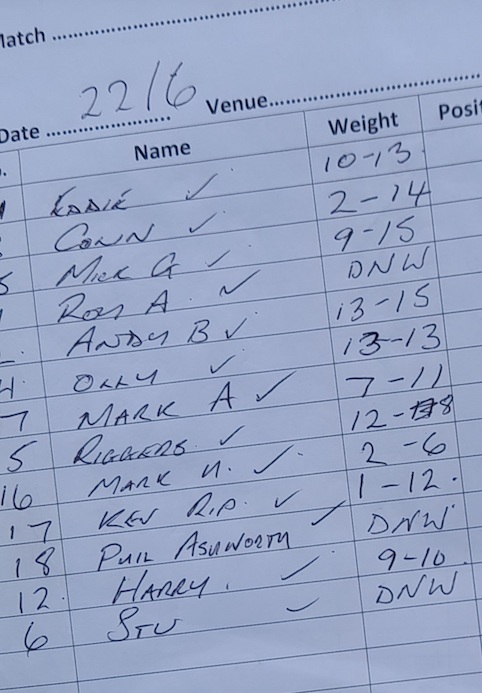 Match
Date 22/6 Venue
Name Weight Posit
EDDIE ✓ 10-13
CONN ✓ 2-14
MICK G ✓ 9-15
ROY A ✓ DNW
ANDY B ✓ 13-15
OLLY ✓ 13-13
7 MARK A ✓ 7-11
5 RIGGERS ✓ 12-8
16 MARK H. ✓ 2-6
17 KEV R.D. ✓ 1-12
18 PHIL ASHWORTH ✓ DNW
12 HARRY. ✓ 9-10
6 STU ✓ DNW